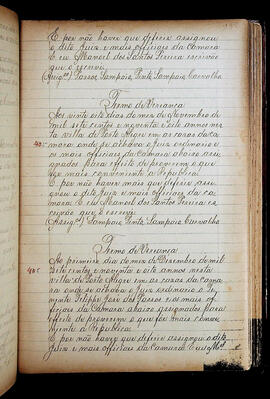 E por não haver que deferir assignou
o dito Juiz e mais officiaes da Camara
E eu Manoel dos Santos Pereira escrivão
que o escrevi
(Assigos) Passos Sampaio Pinto Sampaio Carvalho
Termo de Vereança
Aos vinte oito dias do mez de Novembro de
mil sete centos e noventa e oito annos nes
ta villa de Porto Alegre em os cazas da ca
mara onde se achava o juiz ordinario e
os mais officiaes da Camara abaixo assi
gnados para effeito de proverem o que
fosse mais conveniente a Republica
E por não haver mais que deferir assi
gnou o dito Juiz e mais officiaes da Ca
mara E eu Manoel dos Santos Pereira es
crivão que o escrevi
(Assigos) Sampaio Pinto Sampaio Carvalho
Termo de Vereança
Ao primeiro dia do mez de Dezembro de mil
sete centos e noventa e oito annos nesta
villa de Porto Alegre em os cazas da cama
ra onde se achava o juiz ordinario o Te
nente Filippe José dos Passos e os mais offi
ciaes da Camara abaixo assignados para
effeito de proverem o que for mais conve
niente a Republica
E por não haver que deferir assignou o dito
Juiz e mais officiaes da Camara E eu